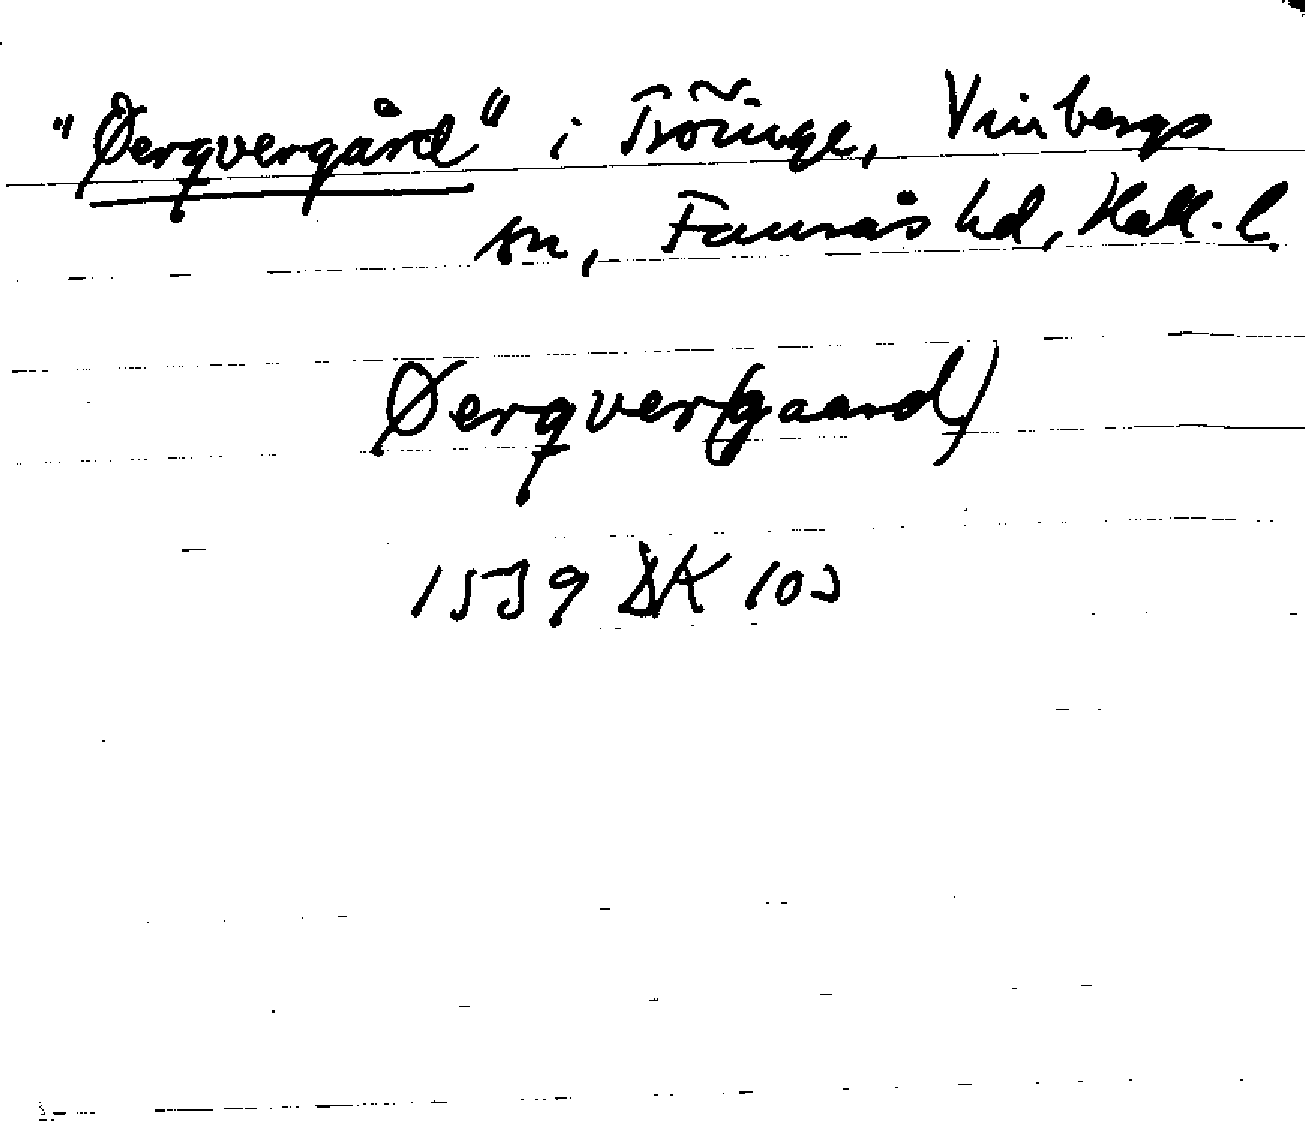 "Øerqvergård" i Tröinge, Vinbergs
sn, Faurås hd, Hall. l.
Øerqver(gaard)
1539 DK 103